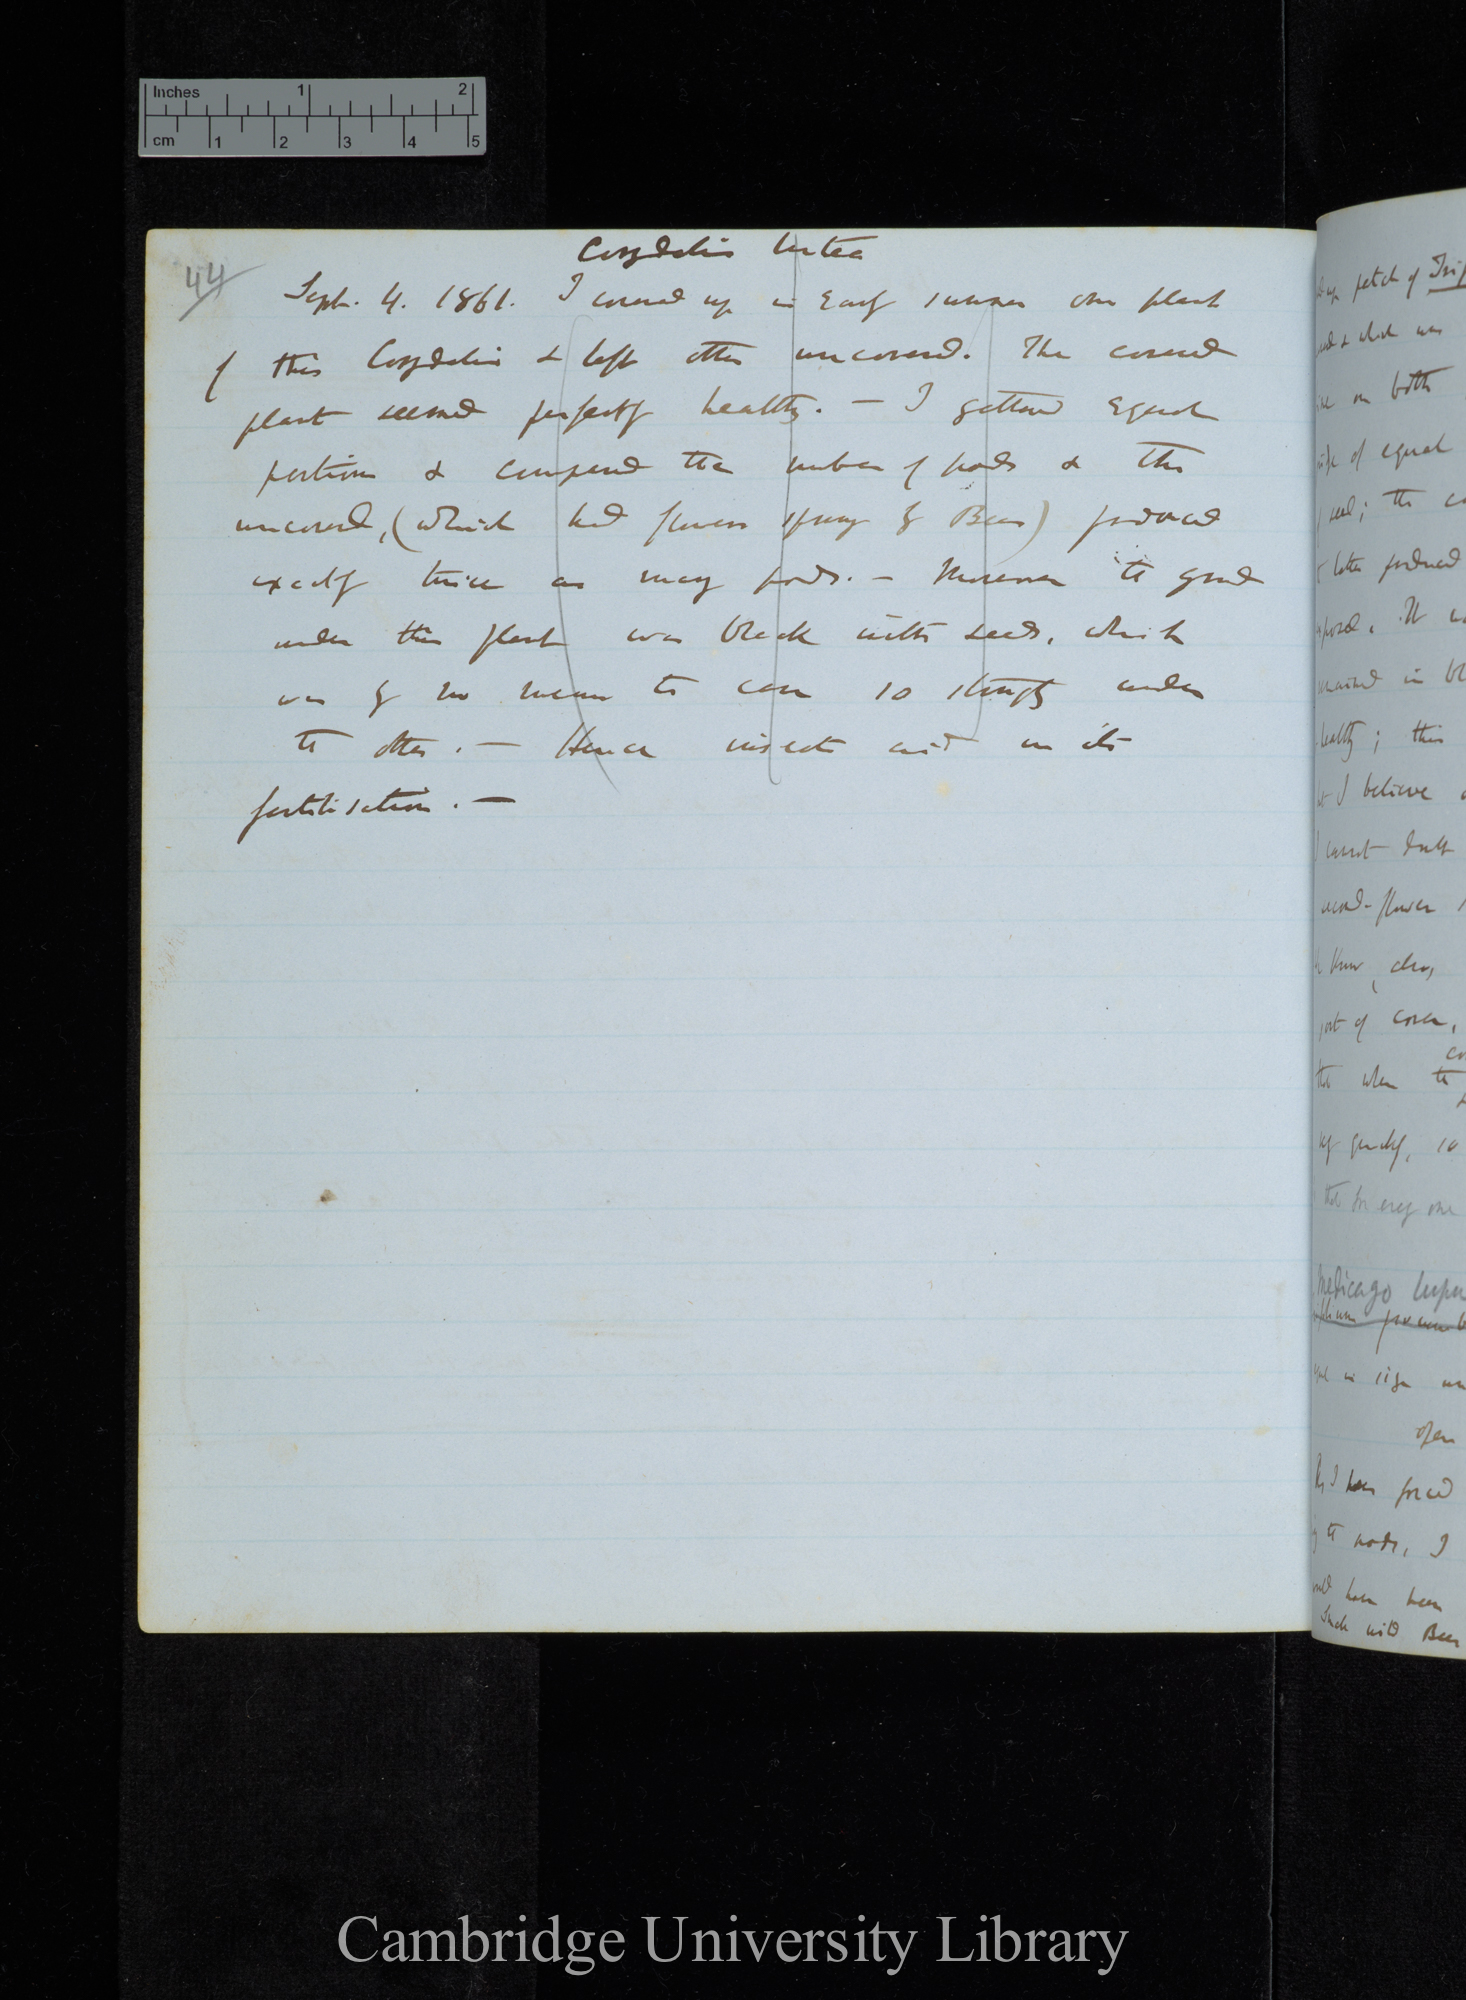 Inches 1 2
cm 1 2 3 4 5
44
Corydalis lutea
Sept. 4. 1861. I covered up in early summer one plant
of this Corydalis & left other uncovered. The covered
plant seemed perfectly healthy. — I gathered equal
portions & compared the number of pods & the
uncovered, (which had flowers sprung by Bees) produced
exactly twice as many pods. — Moreover the ground
under this plant was black with seeds, which
was by no means the case so strongly under
the other. — Hence insects aid in its
fertilisation. —
patch of
& which was
on both
of equal
seed; the
latter produced
. It
remained in
healthy; this
I believe
I cannot doubt
flower
know, also,
part of cover,
that when the
quickly, so
that for every one
Medicago lupu
in size
open
I have forced
the pods, I
have been
Such wild Bees
Cambridge University Library